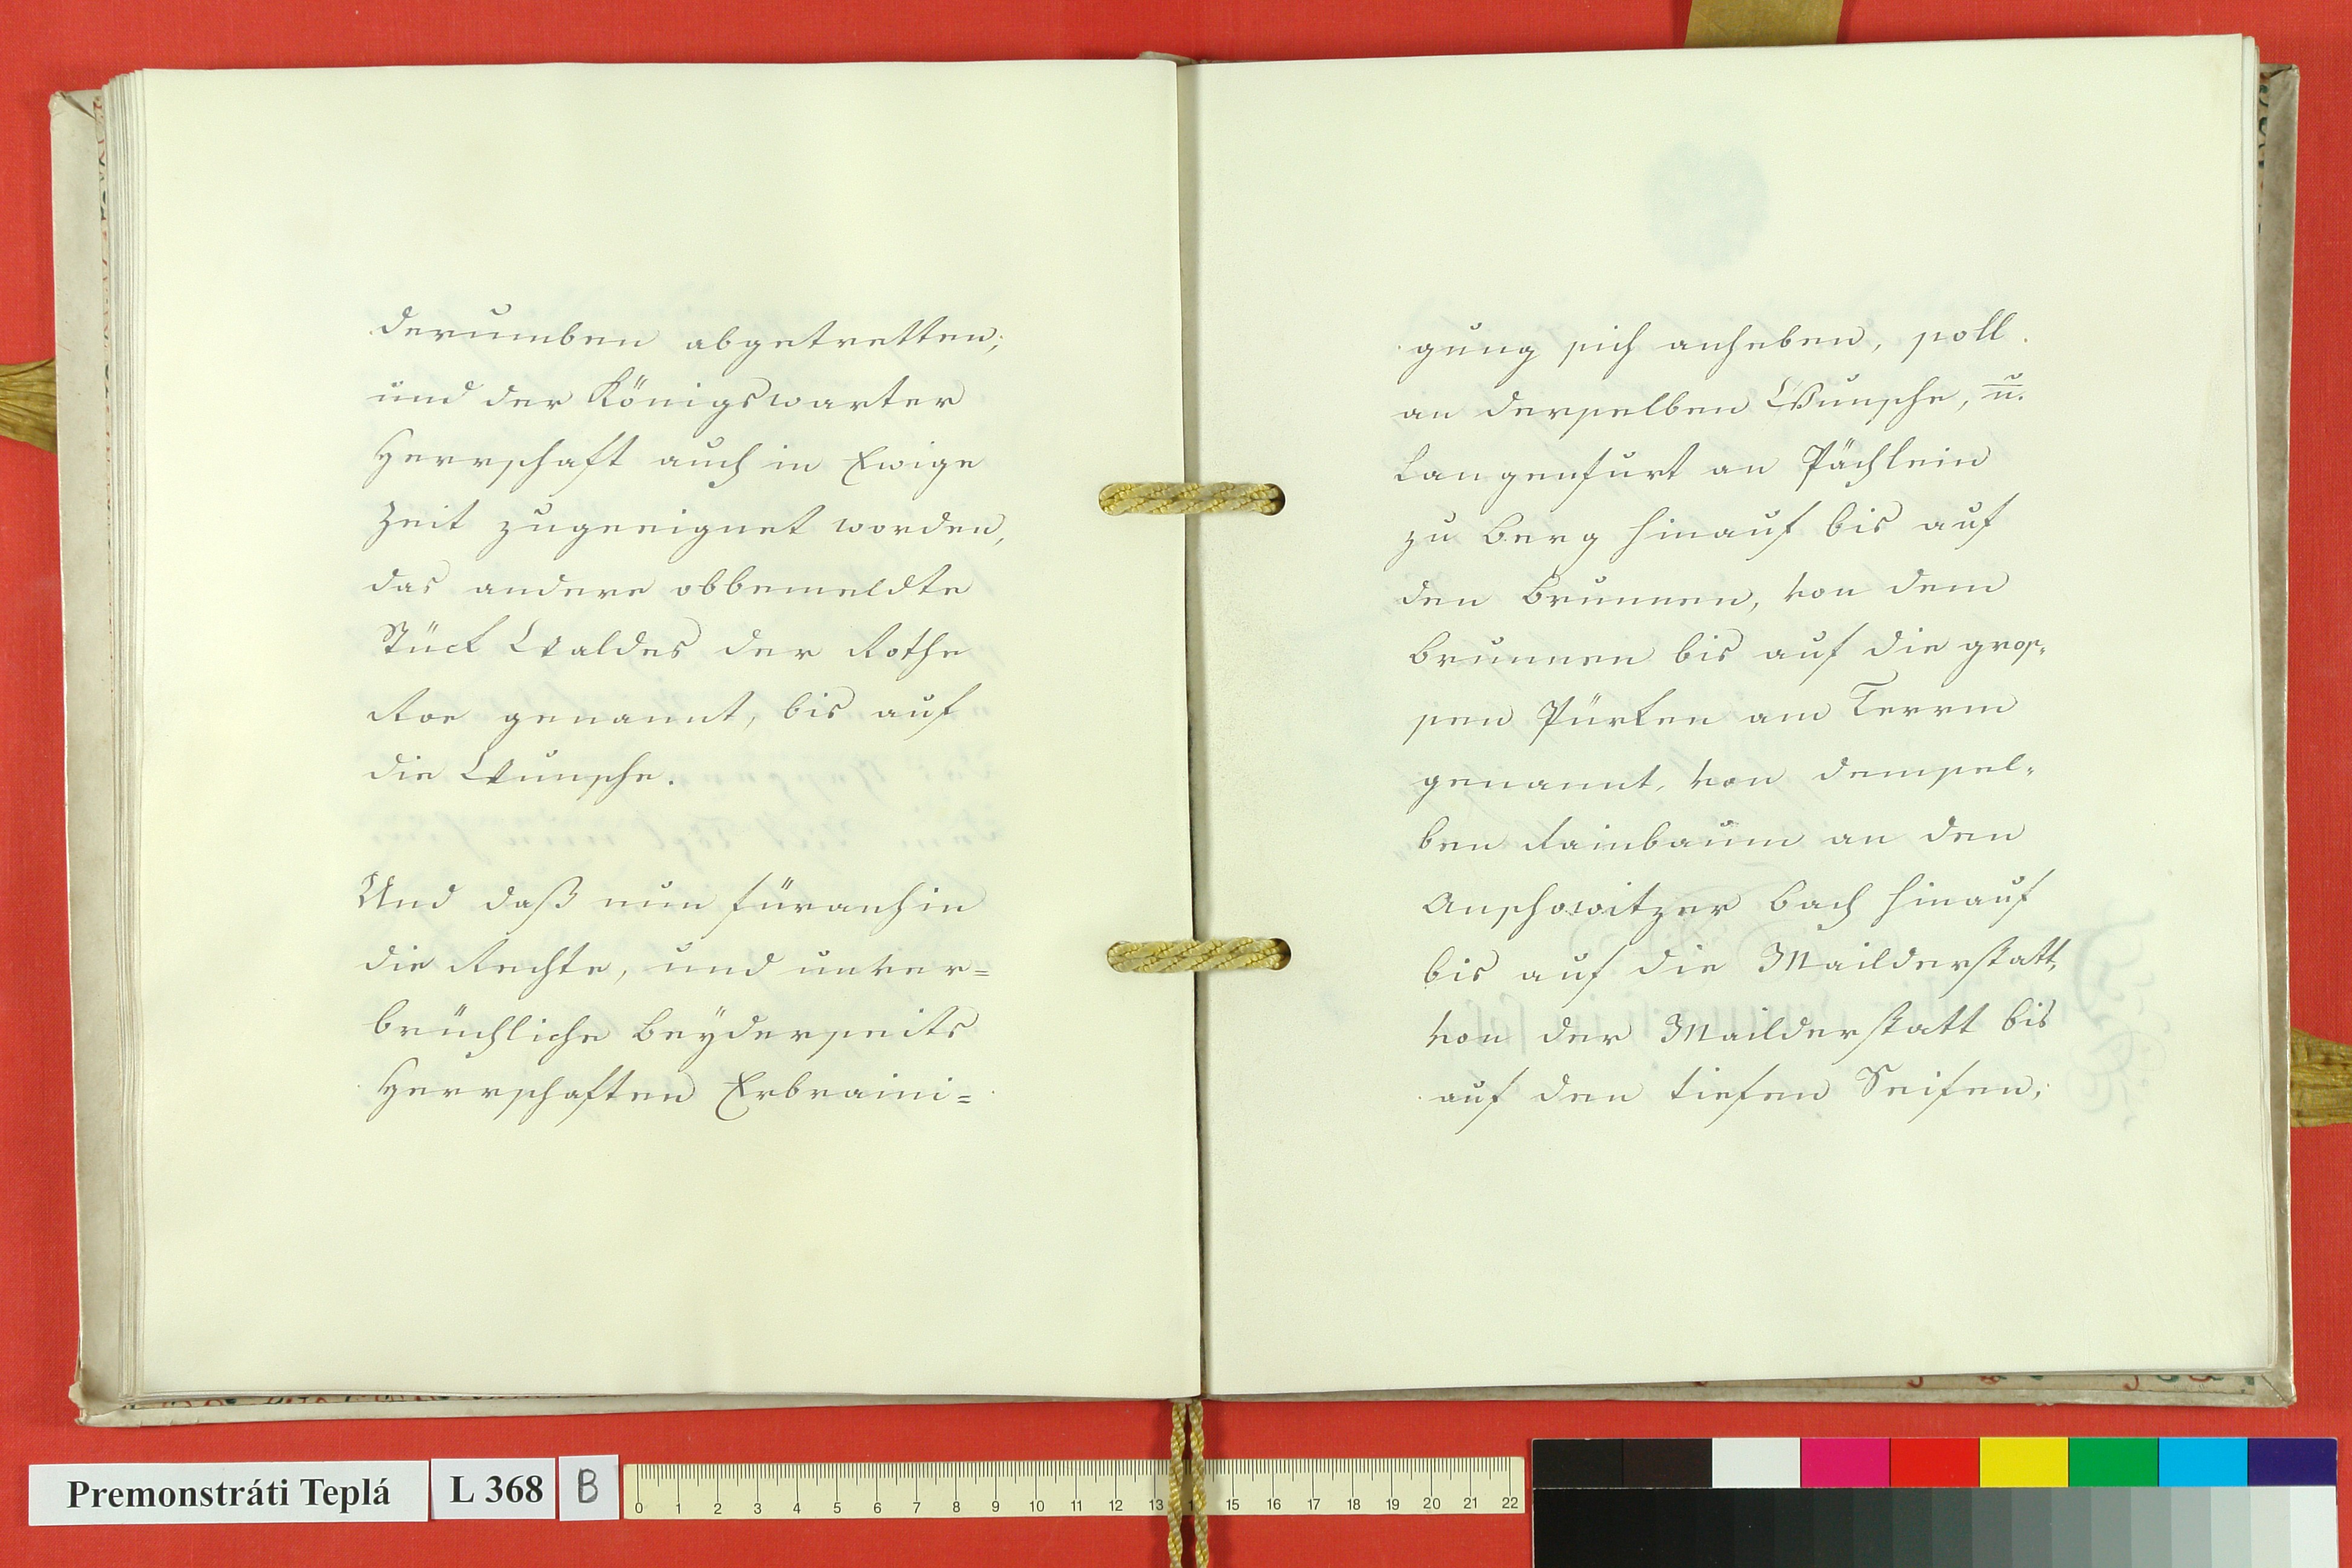 derumben abgetretten;
und der Königswarter
Herrschaft auch in Ewige
Zeit zugeeignet worden,
das andere obbemeldte
Stück Waldes der Rothe
Roe genannt, bis auf
die Wunsche.
Und daß nun füranhin
die Rechte, und unver=
brüchliche Beyderseits
Herrschaften Erbraini=
gung sich anheben, soll
an derselben Wunsche, u.
Langenfurt an Pächlein
zu Berg hinauf bis auf
den Brunnen, von dem
Brunnen bis auf die gros=
sen Pürken am Terrm
genannt, von demsel=
ben Rainbaum an den
Auschowitzer Bach hinauf
bis auf die Mailderstatt,
von der Mailderstatt bis
auf den tiefen Seifen;
Premonstráti Teplá L 368 B
0 1 2 3 4 5 6 7 8 9 10 11 12 13 15 16 17 18 19 20 21 22